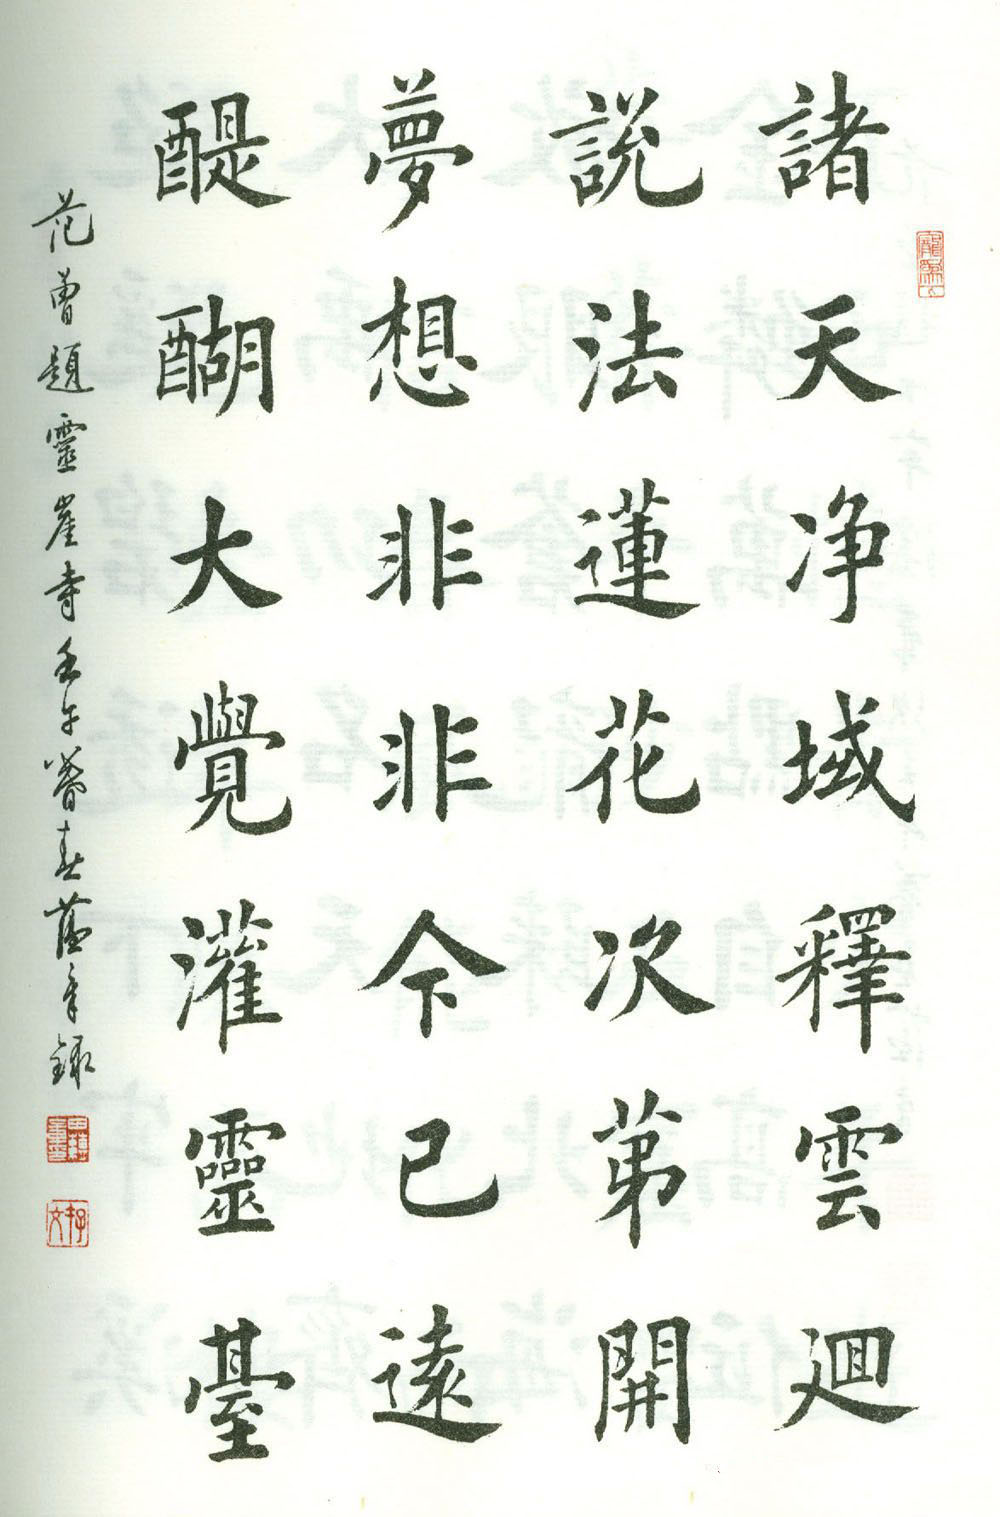 諸天净域釋雲迴
説法蓮花次苐開
夢想非非今已遠
醍醐大覺灌靈臺
范曽題靈崖寺壬午暮春蘊章録